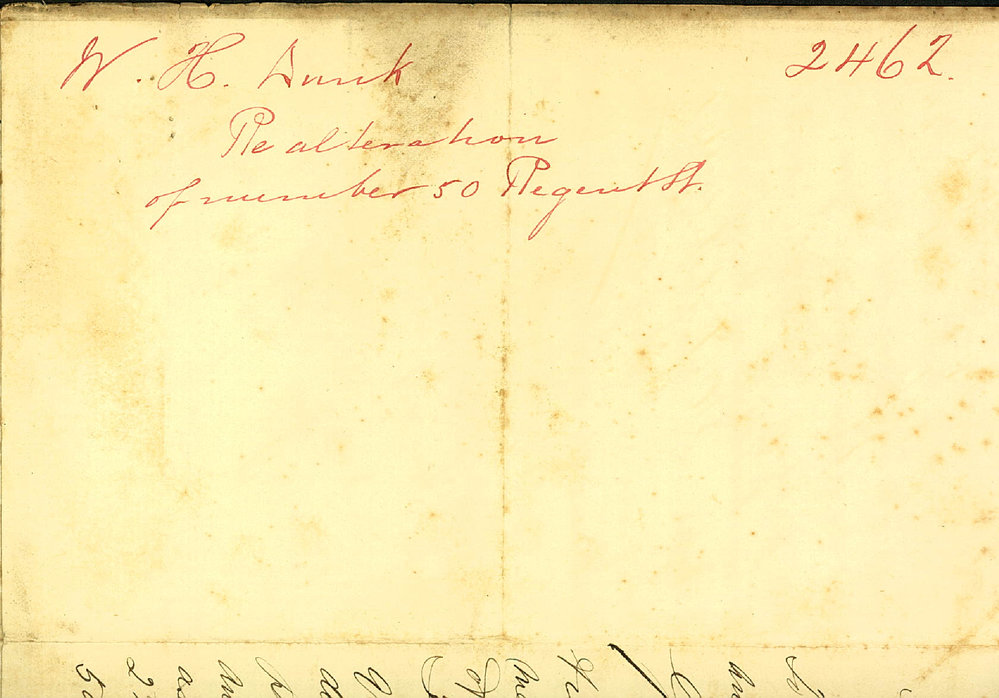 W. H. Dunk 2462.
Re alteration
of number 50 Regent St.